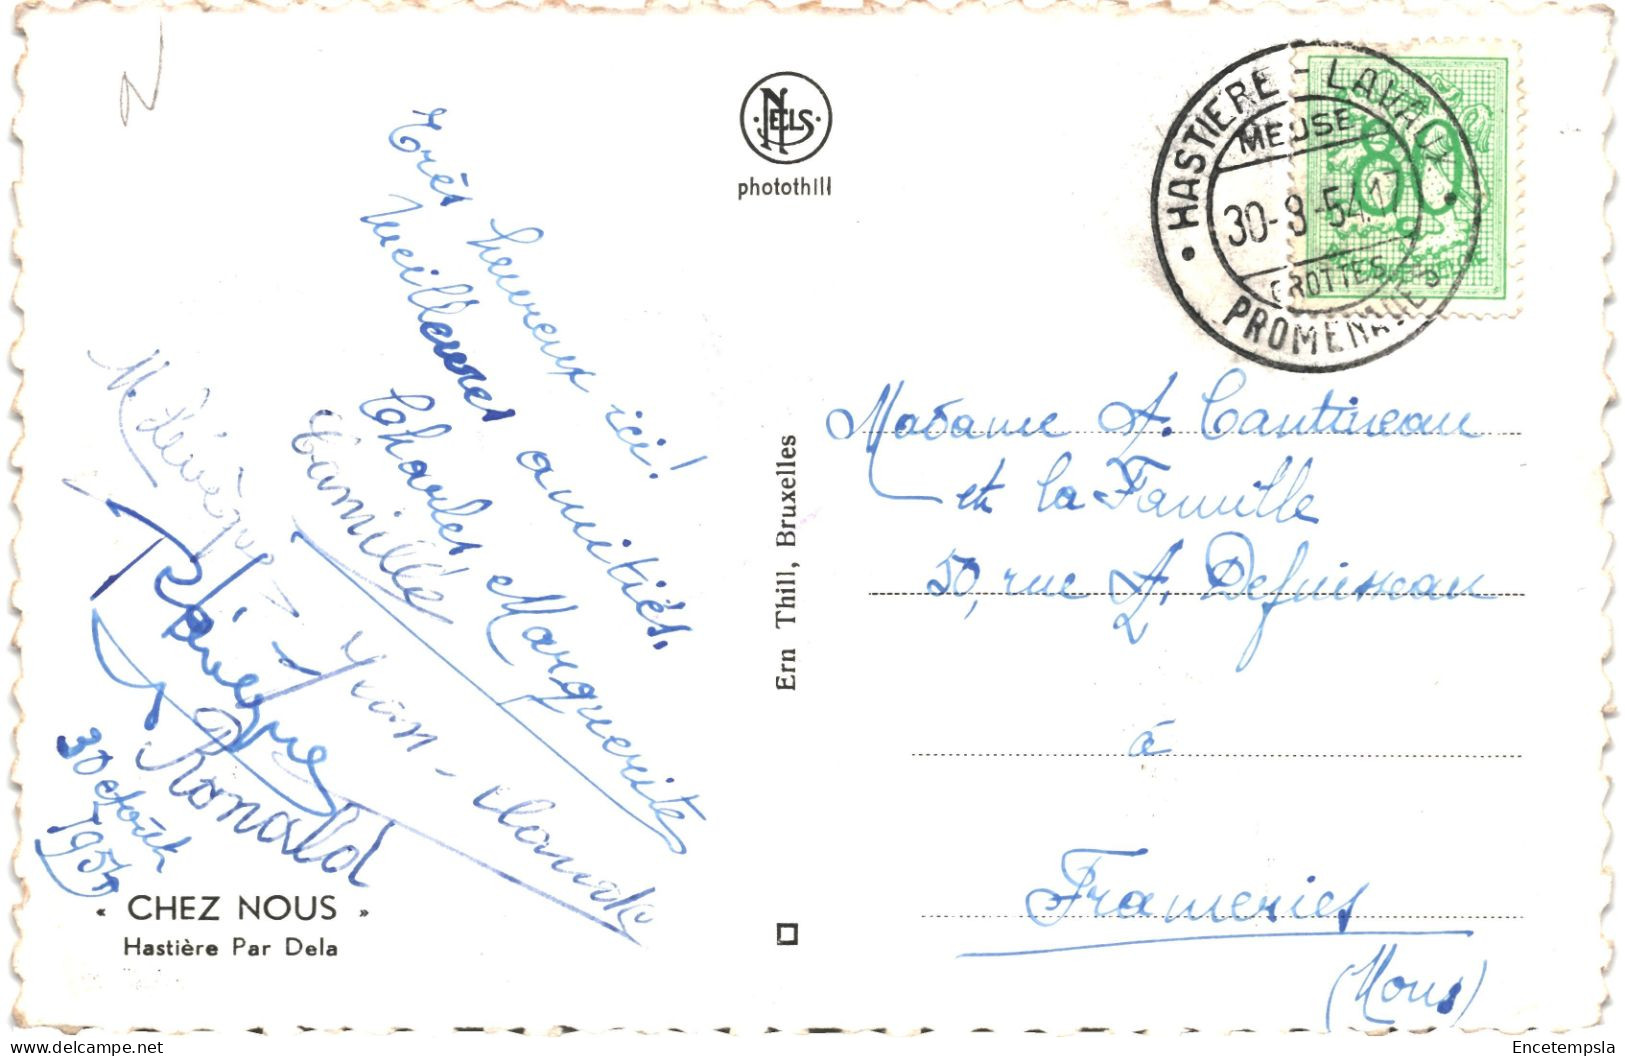 N
NELS
photothill
HASTIERE - LAVAUX
MEUSE
30-8-54.17
GROTTES
PROMENADES
80
Très heureux ici!
Meilleures amitiés.
Charles Marguerite
Camille
M. Lévêque
Yvon-Claude
Ronald
30 Août
1954
Ern Thill, Bruxelles
Madame A. Cantineau
et la Famille
50, rue A. Defuisseau
à
Frameries
(Mons)
« CHEZ NOUS »
Hastière Par Dela
delcampe.net
Encetempsla